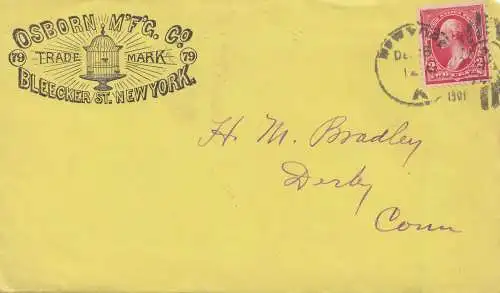 OSBORN M'F'G. CO.
79 TRADE MARK 79
BLEECKER ST. NEW YORK.
NEW Y
DE
12
1901
2 2
TWO CENTS
H. M. Bradley
Derby
Conn